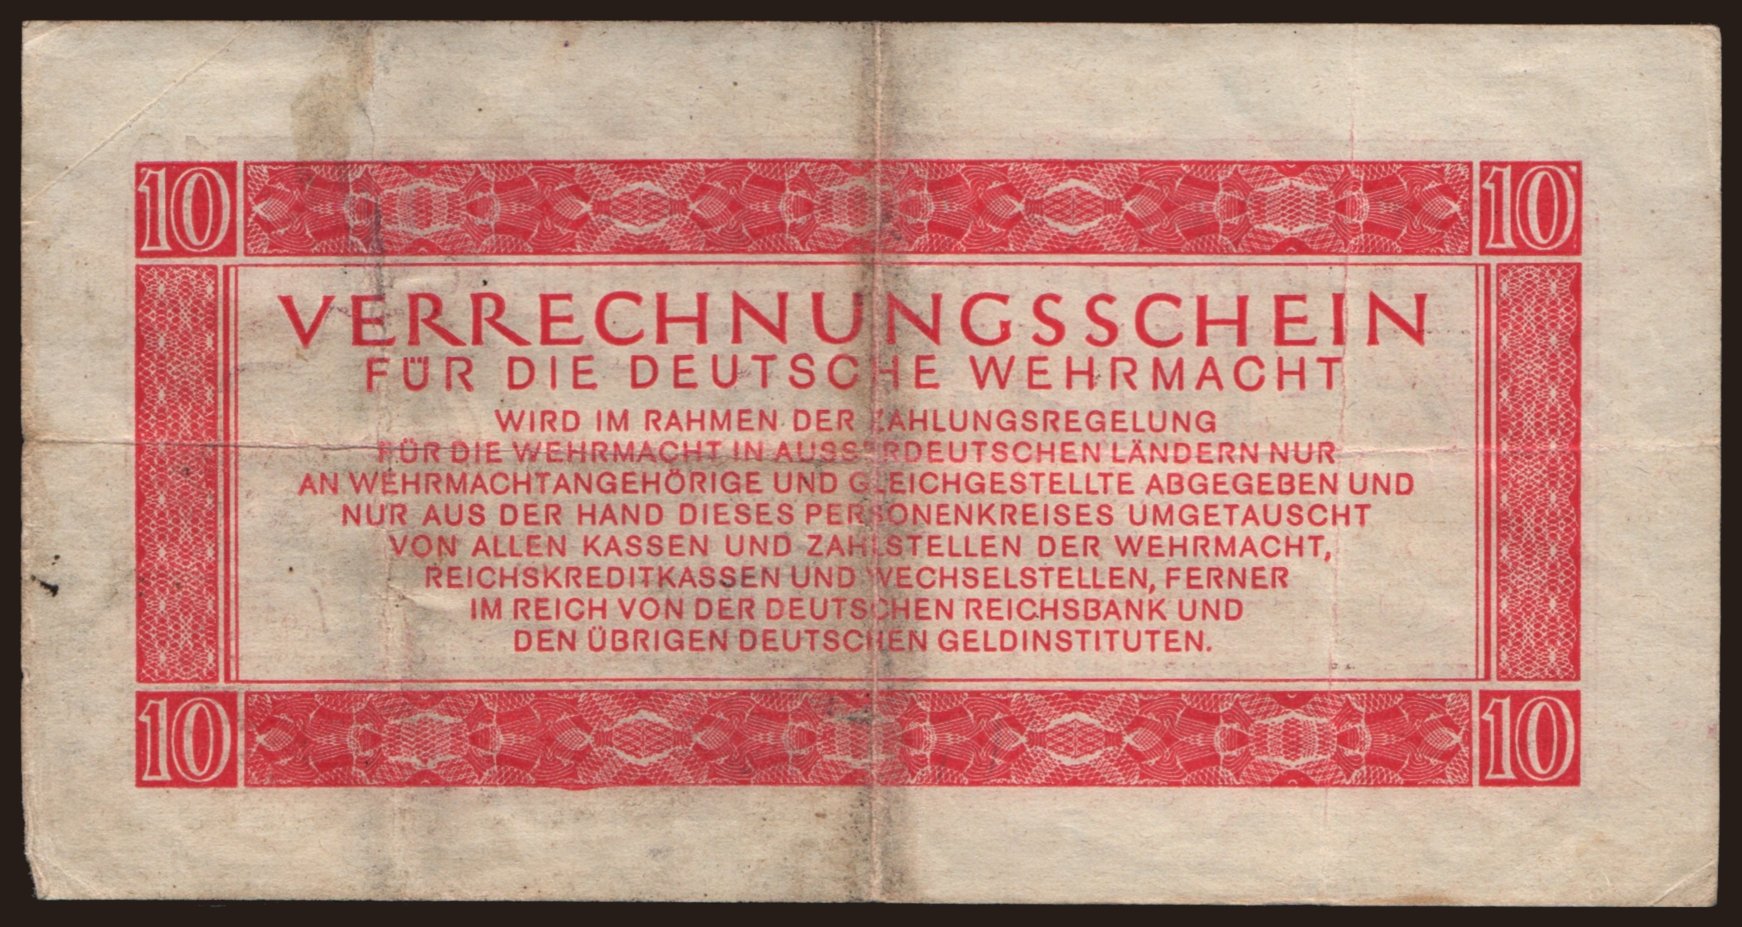 10 10
VERRECHNUNGSSCHEIN
FÜR DIE DEUTSCHE WEHRMACHT
WIRD IM RAHMEN DER ZAHLUNGSREGELUNG
FÜR DIE WEHRMACHT IN AUSSERDEUTSCHEN LÄNDERN NUR
AN WEHRMACHTANGEHÖRIGE UND GLEICHGESTELLTE ABGEGEBEN UND
NUR AUS DER HAND DIESES PERSONENKREISES UMGETAUSCHT
VON ALLEN KASSEN UND ZAHLSTELLEN DER WEHRMACHT,
REICHSKREDITKASSEN UND WECHSELSTELLEN, FERNER
IM REICH VON DER DEUTSCHEN REICHSBANK UND
DEN ÜBRIGEN DEUTSCHEN GELDINSTITUTEN.
10 10